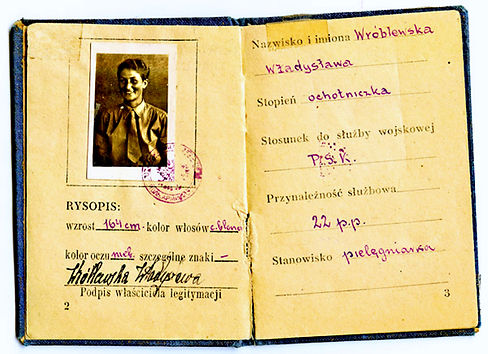 RYSOPIS:
wzrost 164 cm - kolor włosów c.blond
kolor oczu nieb. szczególne znaki —
Wróblewska Władysława
Podpis właściciela legitymacji
2
Nazwisko i imiona Wróblewska
Władysława
Stopień ochotniczka
Stosunek do służby wojskowej
P.S.K.
Przynależność służbowa
22 p.p.
Stanowisko pielęgniarka
3